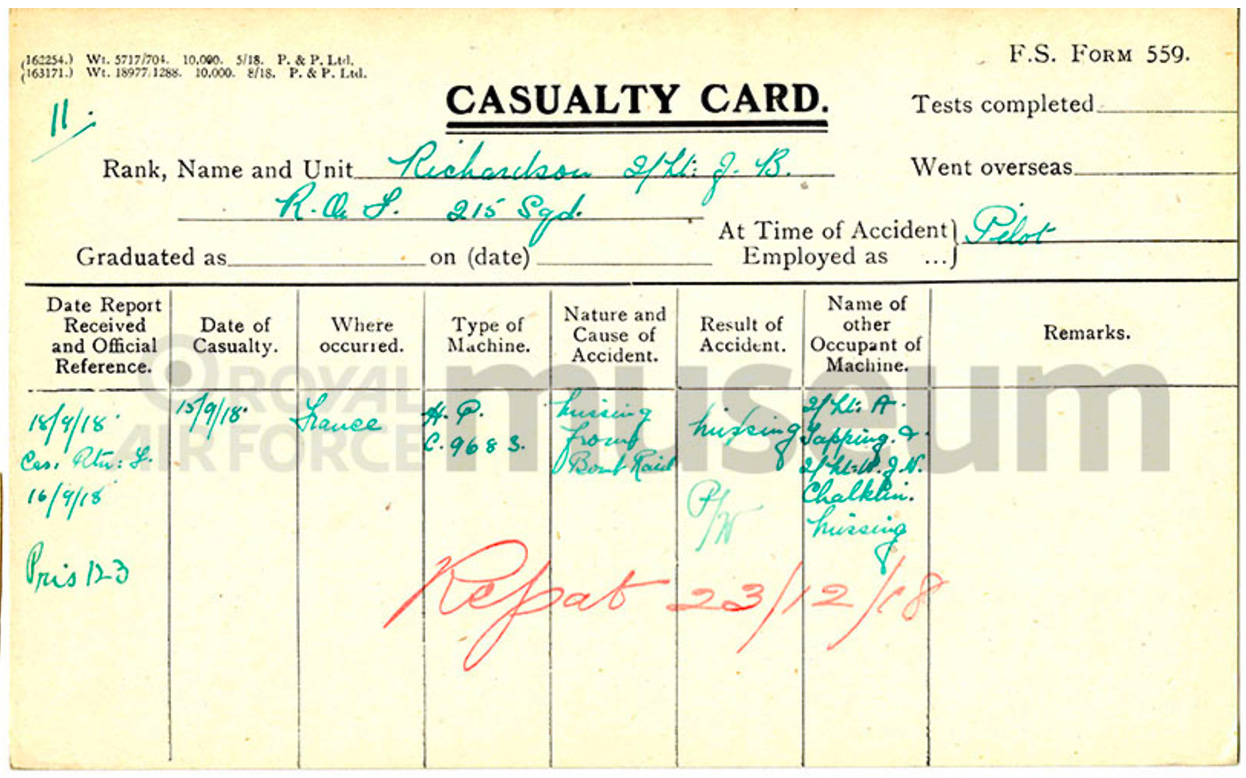 (162254.) Wt. 5717/704. 10,000. 5/18. P. & P. Ltd.
(163171.) Wt. 18977/1288. 10,000. 8/18. P. & P. Ltd.
F.S. Form 559.
11.
CASUALTY CARD.
Tests completed
Rank, Name and Unit Richardson 2/Lt: J. B.
Went overseas
R.A.F. 215 Sqd.
At Time of Accident Employed as ... Pilot
Graduated as on (date)
Date Report Received and Official Reference.
Date of Casualty.
Where occurred.
Type of Machine.
Nature and Cause of Accident.
Result of Accident.
Name of other Occupant of Machine.
Remarks.
18/9/18.
Cas. Rtn: F.
16/9/18
Pris 123
15/9/18.
France
H. P.
C. 9683.
Missing
from
Bomb Raid
Missing
P/W
2/Lt: A.
Tapping. &
2/Lt: W. J. N.
Chalklin.
Missing
Repat 23/12/18
ROYAL
AIR FORCE
museum